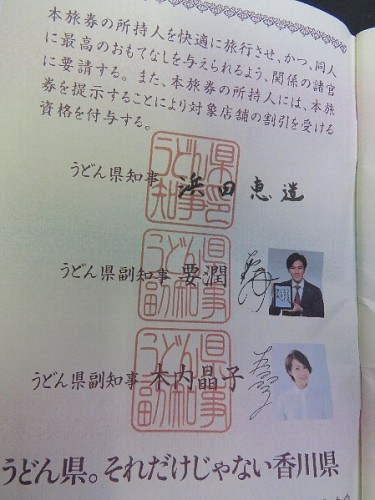 本旅券の所持人を快適に旅行させ、かつ、同人
に最高のおもてなしを与えられるよう、関係の諸官
に要請する。また、本旅券の所持人には、本旅
券を提示することにより対象店舗の割引を受ける
資格を付与する。
うどん県知事 浜田恵造
うどん県知事印
うどん県副知事 要潤
うどん県副知事
うどん県副知事 木内晶子
うどん県副知事
うどん県。それだけじゃない香川県